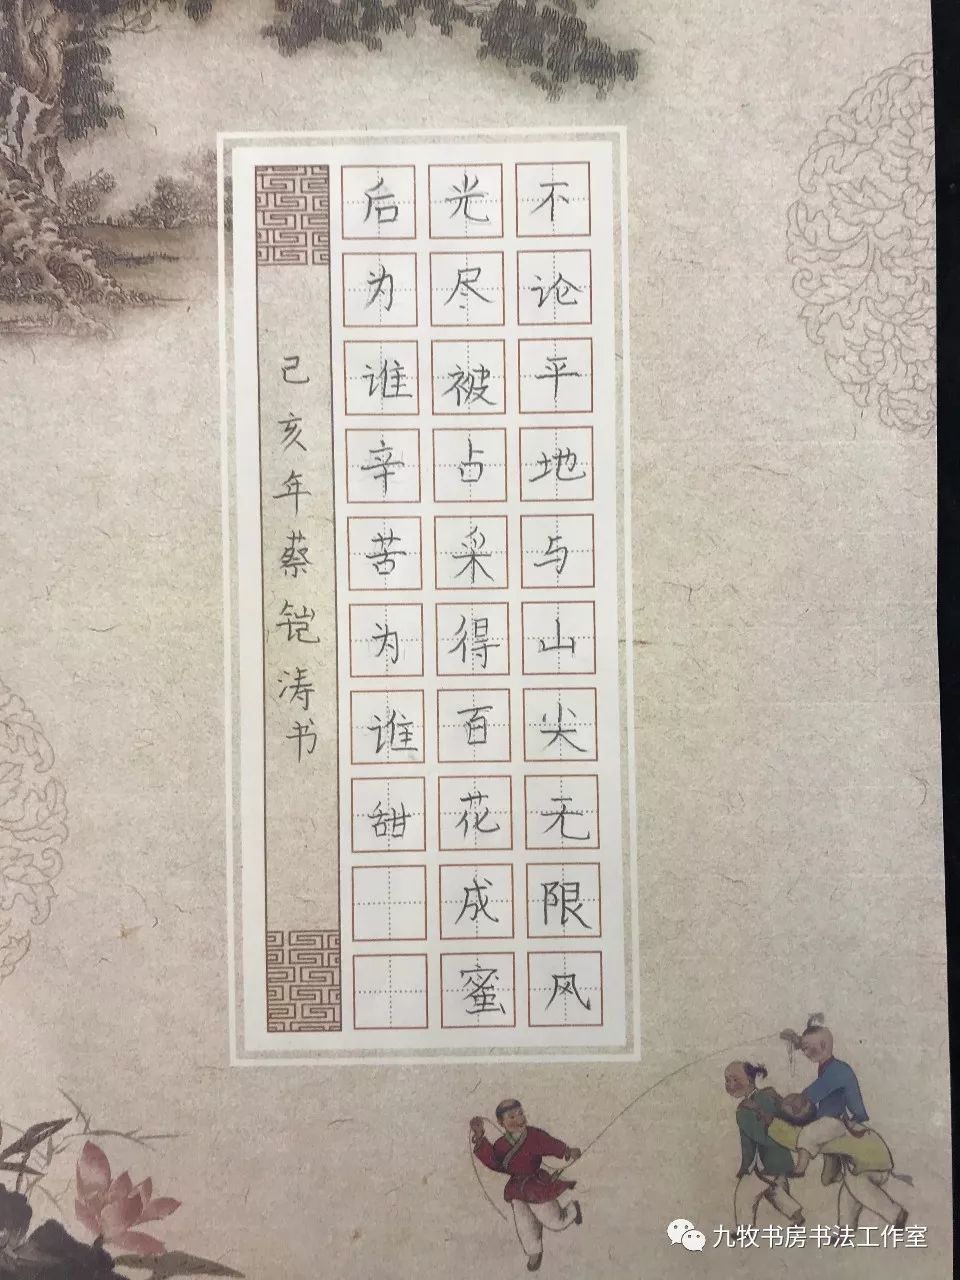 不论平地与山尖无限风
光尽被占采得百花成蜜
后为谁辛苦为谁甜
己亥年蔡铠涛书
九牧书房书法工作室